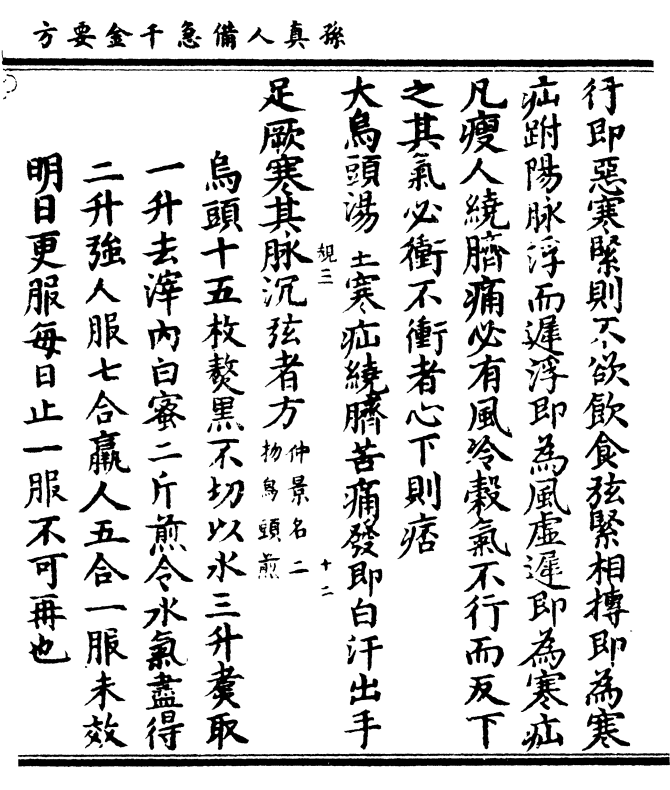 孫真人備急千金要方
行即惡寒緊則不欲飲食弦緊相摶即為寒
疝跗陽脉浮而遲浮即為風虛遲即為寒疝
凡瘦人繞臍痛必有風冷穀氣不行而反下
之其氣必衝不衝者心下則痞
大烏頭湯 主寒疝繞臍苦痛發即白汗出手
三 十二
足厥寒其脉沉弦者方 仲景名二物烏頭煎
烏頭十五枚熬黑不切以水三升煑取
一升去滓內白蜜二斤煎令水氣盡得
二升強人服七合羸人五合一服未效
明日更服每日止一服不可再也